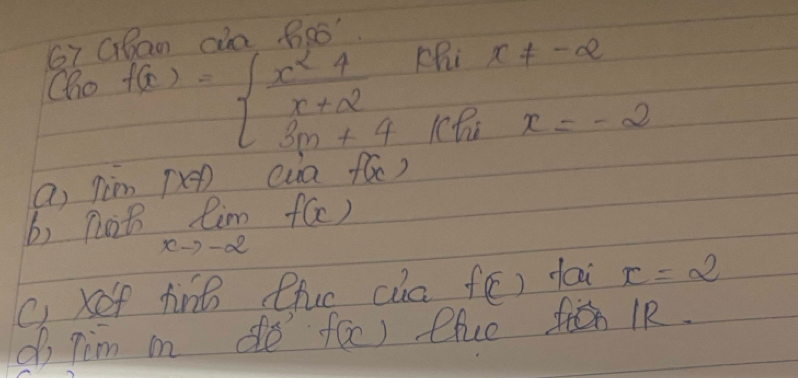 67 Ghạn của hsố
Cho f(x) = { x² 4 / x+2 khi x ≠ -2
3m + 4 khi x = -2
a) Tìm TXĐ của f(x)
b) Tính lim f(x)
x→-2
c) Xét tính ltục của f(x) tại x = 2
d) Tìm m để f(x) ltục trên IR.